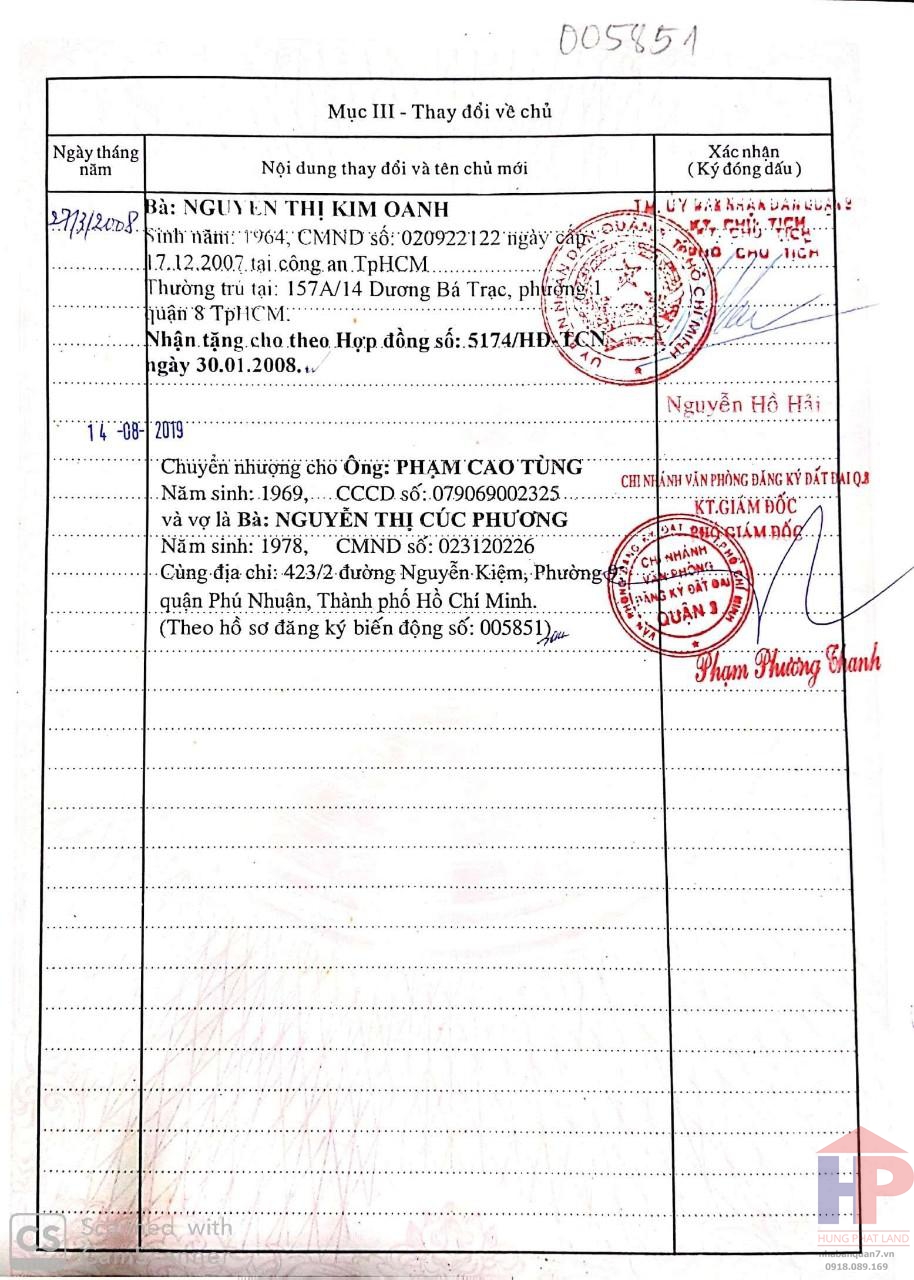 005851
Mục III - Thay đổi về chủ
Ngày tháng năm
Nội dung thay đổi và tên chủ mới
Xác nhận
( Ký đóng dấu )
27/3/2008
Bà: NGUYỄN THỊ KIM OANH
Sinh năm: 1964, CMND số: 020922122 ngày cấp
17.12.2007 tại công an TpHCM
Thường trú tại: 157A/14 Dương Bá Trạc, phường 1
quận 8 TpHCM.
Nhận tặng cho theo Hợp đồng số: 5174/HĐ-TCN
ngày 30.01.2008.
TM. ỦY BAN NHÂN DÂN QUẬN
KT. CHỦ TỊCH
PHÓ CHỦ TỊCH
Nguyễn Hồ Hải
14 -08- 2019
Chuyển nhượng cho Ông: PHẠM CAO TÙNG
Năm sinh: 1969, CCCD số: 079069002325
và vợ là Bà: NGUYỄN THỊ CÚC PHƯƠNG
Năm sinh: 1978, CMND số: 023120226
Cùng địa chỉ: 423/2 đường Nguyễn Kiệm, Phường 9
quận Phú Nhuận, Thành phố Hồ Chí Minh.
(Theo hồ sơ đăng ký biến động số: 005851)
CHI NHÁNH VĂN PHÒNG ĐĂNG KÝ ĐẤT ĐAI Q.8
KT.GIÁM ĐỐC
PHÓ GIÁM ĐỐC
CHI NHÁNH
VĂN PHÒNG
ĐĂNG KÝ ĐẤT ĐAI
QUẬN 8
Phạm Phương Thanh
CS Scanned with
HP
HUNG PHAT LAND
nhabanquan7.vn
0918.089.169